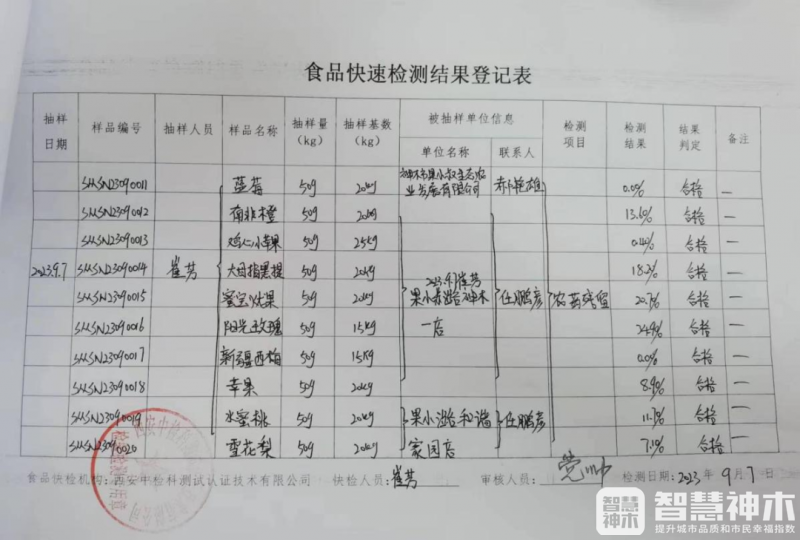 食品快速检测结果登记表
抽样日期 样品编号 抽样人员 样品名称 抽样量(kg) 抽样基数(kg) 被抽样单位信息 检测项目 检测结果 结果判定 备注
单位名称 联系人
SMSN23090011 蓝莓 50g 20kg 0.0% 合格 —
SMSN23090012 南非橙 50g 20kg 13.6% 合格 —
SMSN23090013 鸡心小苹果 50g 25kg 合格 —
2023.9.7 SMSN23090014 崔芳 50g 20kg 18.2% 合格 —
SMSN23090015 50g 20kg 任鹏彦 农药残留 20.7% 合格 —
SMSN23090016 阳光玫瑰 50g 15kg 一店 24.9% 合格 —
SMSN23090017 新疆西梅 50g 15kg 0.0% 合格 —
SMSN23090018 苹果 50g 20kg 8.9% 合格 —
SMSN23090019 水蜜桃 50g 20kg 任鹏彦 11.7% 合格 —
SMSN23090020 雪花梨 50g 20kg 家园店 7.1% 合格 —
食品快检机构:西安中检科测试认证技术有限公司 快检人员:崔芳 审核人员: 检测日期:2023年9月7日
智慧神木
智慧神木
提升城市品质和市民幸福指数